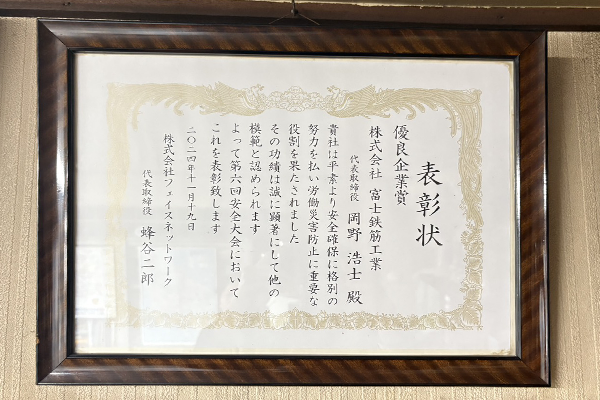 表彰状
優良企業賞
株式会社 富士鉄筋工業
代表取締役 岡野 浩士 殿
貴社は平素より安全確保に格別の
努力を払い労働災害防止に重要な
役割を果たされました
その功績は誠に顕著にして他の
模範と認められます
よって第六回安全大会において
これを表彰致します
二〇二四年十一月十九日
株式会社フェイスネットワーク
代表取締役 蜂谷二郎